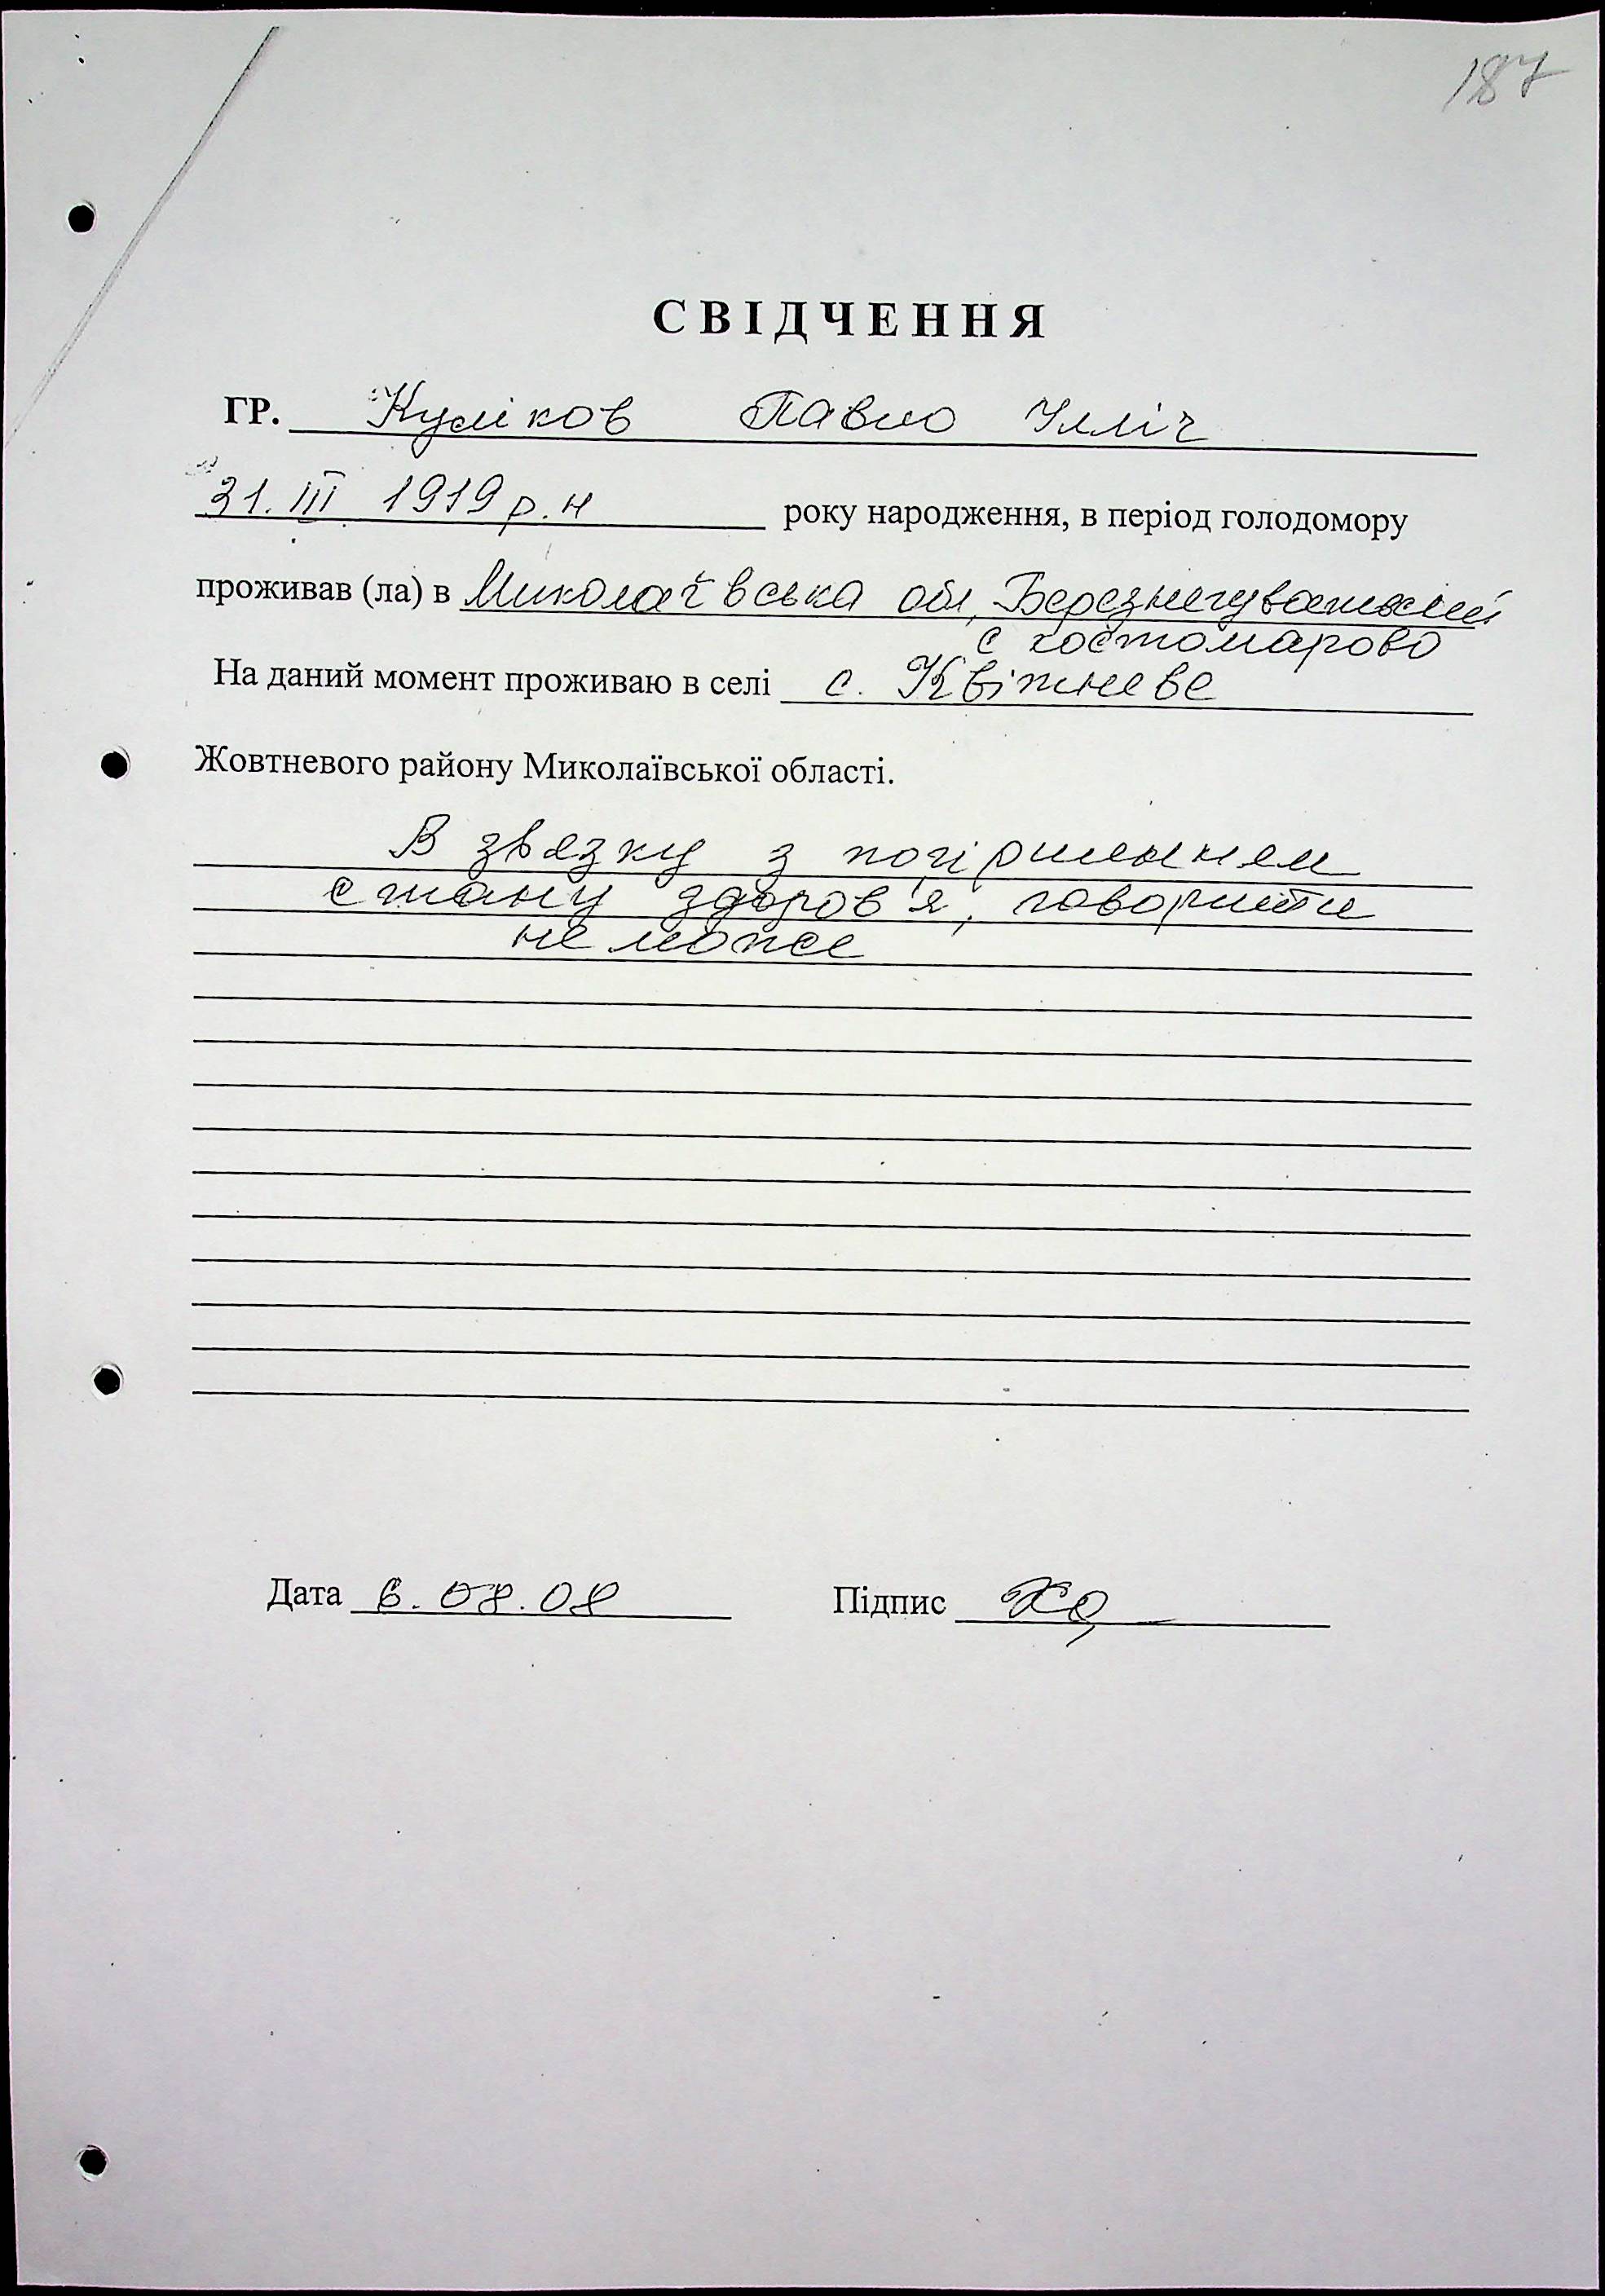 187
СВІДЧЕННЯ
ГР. Куліков Павло Ілліч
31. III 1919 р.н року народження, в період голодомору
проживав (ла) в Миколаївська обл, Березнегуватский
с костомарово
На даний момент проживаю в селі с. Квітневе
Жовтневого району Миколаївської області.
В звязку з погіршеннем
стану здоров'я, говорити
не може
Дата 6.08.08 Підпис